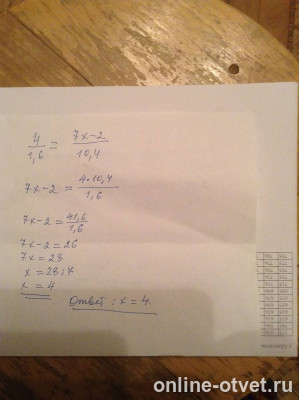 4/1,6 = 7x-2/10,4
7x-2 = 4·10,4/1,6
7x-2 = 41,6/1,6
7x-2 = 26
7x = 28
x = 28:7
x = 4
Ответ: x = 4.
online-otvet.ru